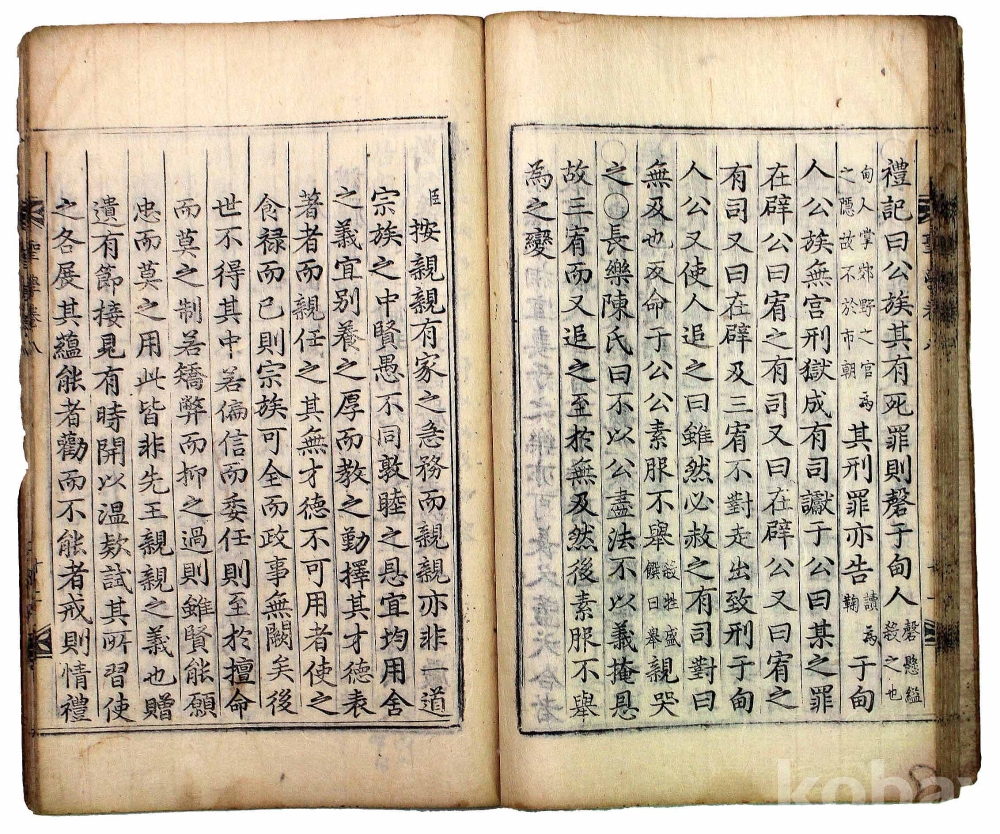 禮記曰公族其有死罪則磬于甸人磬懸縊殺之也
甸人掌郊野之官爲之隱故不於市朝其刑罪亦告讀爲鞠于甸
人公族無宮刑獄成有司讞于公曰某之罪
在辟公曰宥之有司又曰在辟公又曰宥之
有司又曰在辟及三宥不對走出致刑于甸
人公又使人追之曰雖然必赦之有司對曰
無及也反命于公公素服不舉殺牲盛饌曰舉親哭
之○長樂陳氏曰不以公盡法不以義掩恩
故三宥而又追之至於無及然後素服不舉
為之變
臣按親親有家之急務而親親亦非一道
宗族之中賢愚不同敦睦之恩宜均用舍
之義宜別養之厚而教之勤擇其才德表
著者而親任之其無才德不可用者使之
食禄而已則宗族可全而政事無闕矣後
世不得其中若偏信而委任則至於擅命
而莫之制若矯弊而抑之過則雖賢能願
忠而莫之用此皆非先王親親之義也贈
遺有節接見有時開以温欵試其所習使
之各展其蘊能者勸而不能者戒則情禮